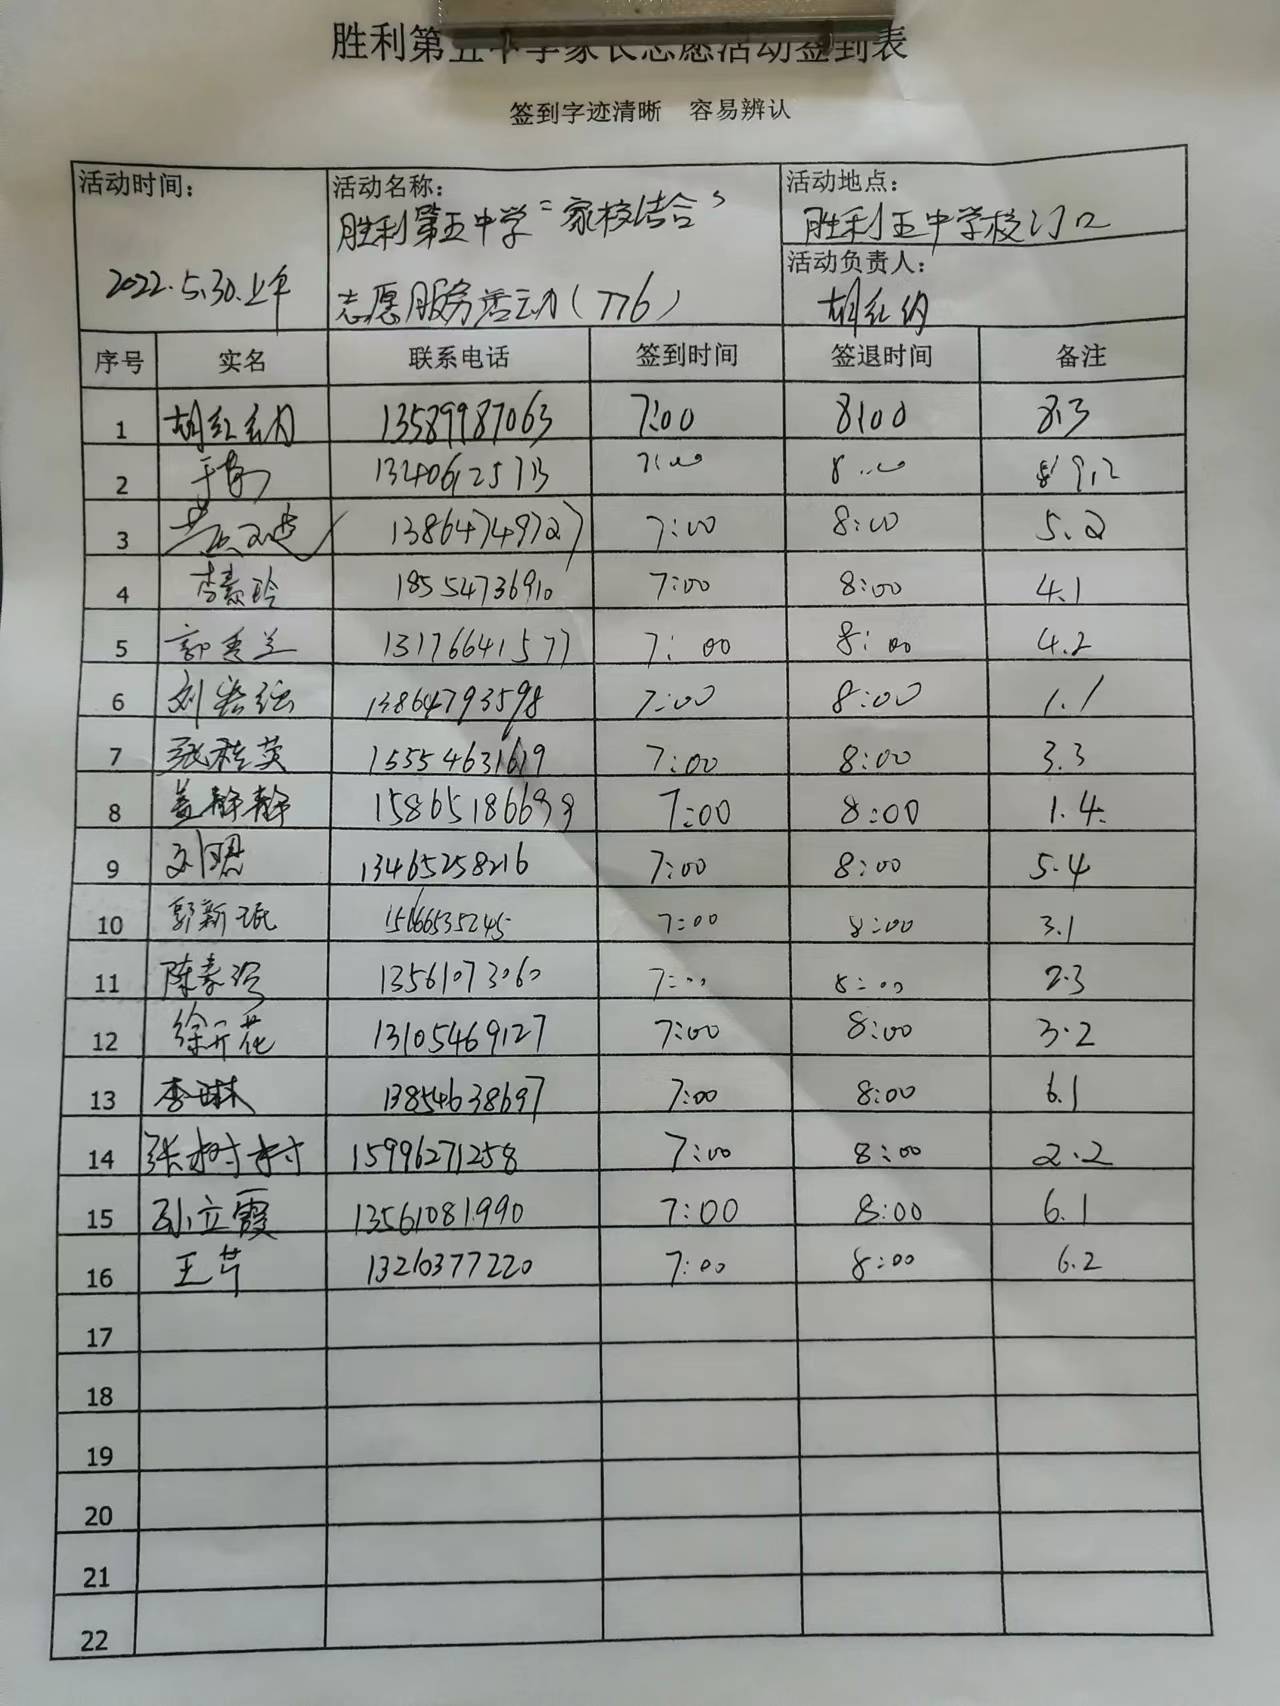 胜利第五中学家长志愿活动签到表
签到字迹清晰 容易辨认
活动时间：
2022.5.30.上午
活动名称：
胜利第五中学“家校结合”
志愿服务活动（776）
活动地点：
胜利五中学校门口
活动负责人：
胡红纳
序号 实名 联系电话 签到时间 签退时间 备注
1 胡红纳 13589987063 7:00 8:00 8.3
2 7:00 8:00 9.2
3 13864749727 7:00 8:00 5.2
4 李素玲 18554736910 7:00 8:00 4.1
5 郭秀兰 13176641577 7:00 8:00 4.2
6 13864793598 7:00 8:00 1.1
7 张桂英 15554631619 7:00 8:00 3.3
8 盖静静 15865186699 7:00 8:00 1.4.
9 13465258216 7:00 8:00 5.4
10 郭新珉 15166535245 7:00 8:00 3.1
11 13561073060 7:00 8:00 2.3
12 徐开花 13105469127 7:00 8:00 3.2
13 李琳 13854638697 7:00 8:00 6.1
14 张树村 15996271258 7:00 8:00 2.2
15 孙立霞 13561081990 7:00 8:00 6.1
16 王芹 13210377220 7:00 8:00 6.2
17
18
19
20
21
22